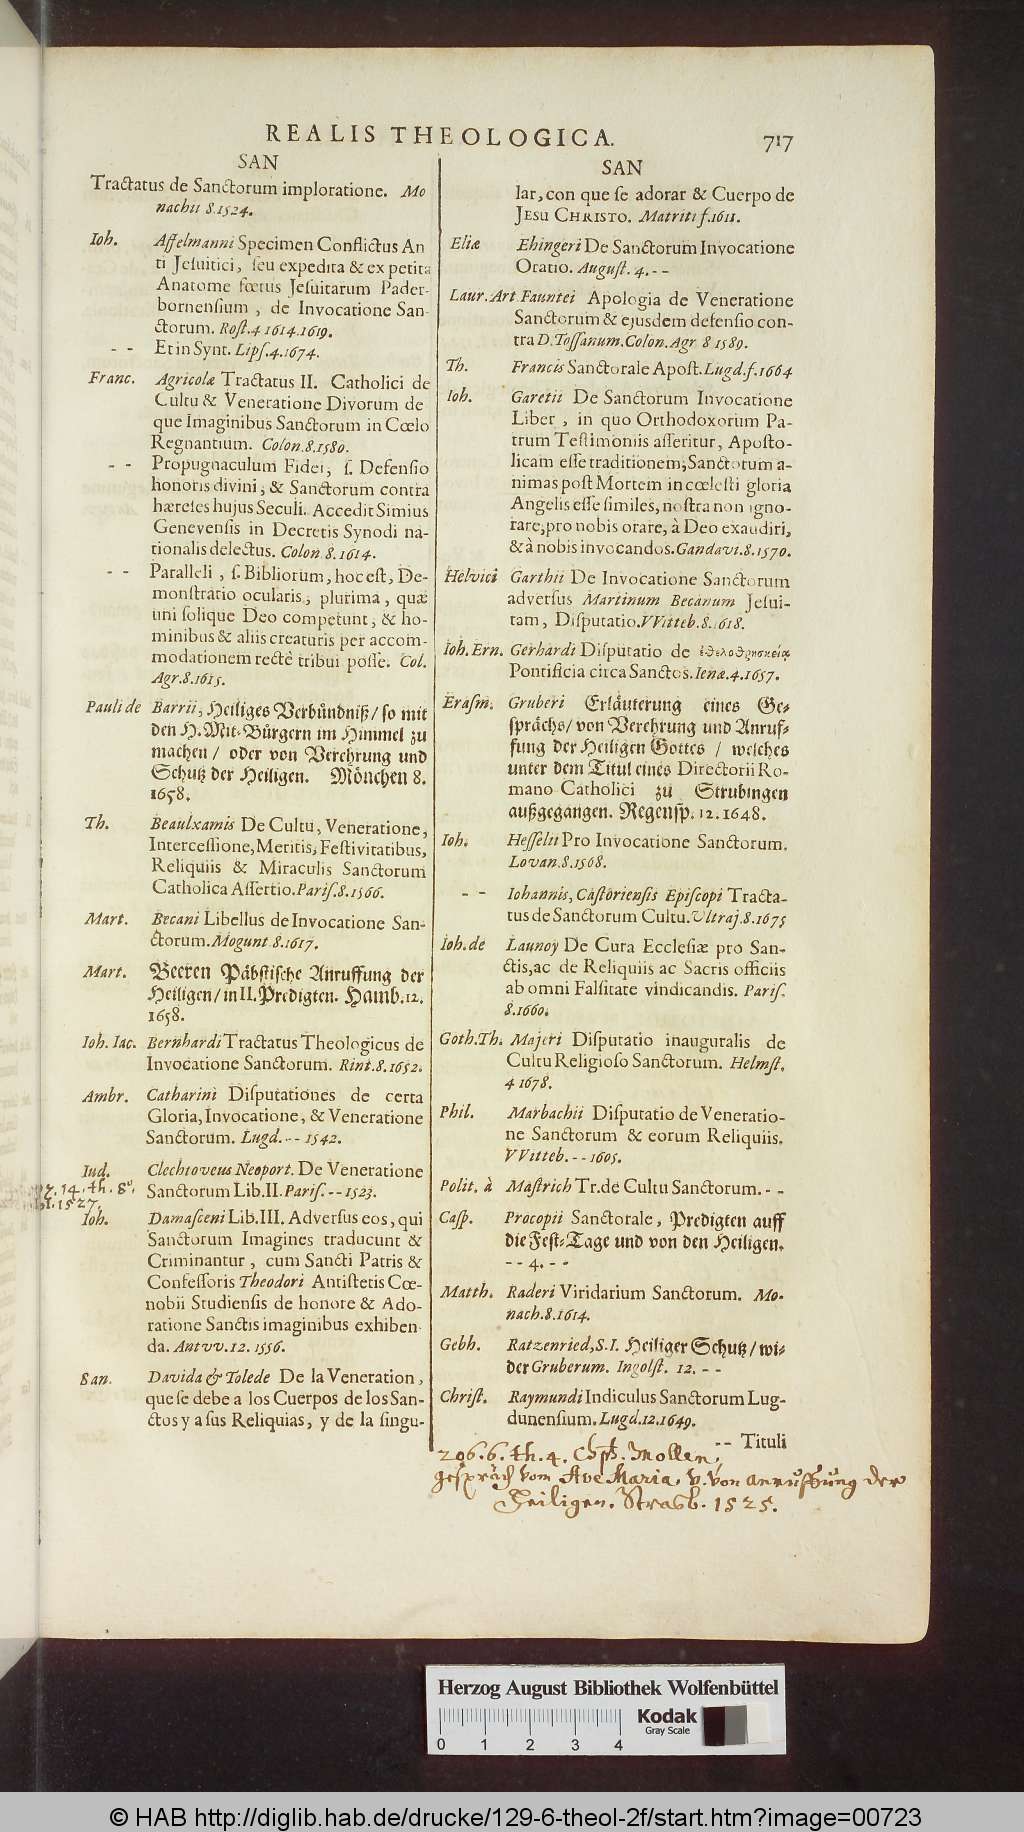 REALIS THEOLOGICA. 717
SAN
Tractatus de Sanctorum imploratione. Mo
nachii 8.1524.
Ioh. Aſſelmanni Specimen Conflictus An
ti Jeſuitici, ſeu expedita & ex petita
Anatome fœtus Jeſuitarum Pader-
bornenſium, de Invocatione San-
ctorum. Roſt.4 1614.1619.
- - Et in Synt. Lipſ.4.1674.
Franc. Agricolæ Tractatus II. Catholici de
Cultu & Veneratione Divorum de
que Imaginibus Sanctorum in Cœlo
Regnantium. Colon.8.1580.
- - Propugnaculum Fidei, ſ. Defenſio
honoris divini, & Sanctorum contra
hæreſes hujus Seculi. Accedit Simius
Genevenſis in Decretis Synodi na-
tionalis delectus. Colon 8.1614.
- - Paralleli, ſ. Bibliorum, hoc eſt, De-
monſtratio ocularis, plurima, quæ
uni ſolique Deo competunt, & ho-
minibus & aliis creaturis per accom-
modationem rectè tribui poſſe. Col.
Agr.8.1615.
Pauli de Barrii, Heiliges Verbündniß/ ſo mit
den H. Mit-Bürgern im Himmel zu
machen/ oder von Verehrung und
Schutz der Heiligen. Mönchen 8.
1658.
Th. Beaulxamis De Cultu, Veneratione,
Interceſſione, Meritis, Feſtivitatibus,
Reliquiis & Miraculis Sanctorum
Catholica Aſſertio. Pariſ.8.1566.
Mart. Becani Libellus de Invocatione San-
ctorum. Mogunt 8.1617.
Mart. Beeren Päbſtiſche Anruffung der
Heiligen/ in II. Predigten. Hamb.12.
1658.
Ioh. Iac. Bernhardi Tractatus Theologicus de
Invocatione Sanctorum. Rint.8.1652.
Ambr. Catharini Diſputationes de certa
Gloria, Invocatione, & Veneratione
Sanctorum. Lugd. - - 1542.
Iud. Clechtoveus Neoport. De Veneratione
Sanctorum Lib. II. Pariſ. - - 1523.
14. th. 8°.
1527.
Ioh. Damaſceni Lib. III. Adverſus eos, qui
Sanctorum Imagines traducunt &
Criminantur, cum Sancti Patris &
Confeſſoris Theodori Antiſtetis Cœ-
nobii Studienſis de honore & Ado-
ratione Sanctis imaginibus exhiben-
da. Antvv.12.1556.
San. Davida & Tolede De la Veneration,
que ſe debe a los Cuerpos de los San-
ctos y a ſus Reliquias, y de la ſingu-
SAN
lar, con que ſe adorar & Cuerpo de
JESU CHRISTO. Matriti f.1611.
Eliæ Ehingeri De Sanctorum Invocatione
Oratio. Auguſt. 4. - -
Laur. Art Fauntei Apologia de Veneratione
Sanctorum & ejusdem defenſio con-
tra D. Toſſanum. Colon. Agr 8 1589.
Th. Francis Sanctorale Apoſt. Lugd.f.1664
Ioh. Garetii De Sanctorum Invocatione
Liber, in quo Orthodoxorum Pa-
trum Teſtimoniis aſſeritur, Apoſto-
licam eſſe traditionem, Sanctorum a-
nimas poſt Mortem in cœleſti gloria
Angelis eſſe ſimiles, noſtra non igno-
rare, pro nobis orare, à Deo exaudiri,
& à nobis invocandos. Gandavi.8.1570.
Helvici Garthii De Invocatione Sanctorum
adverſus Martinum Becanum Jeſui-
tam, Diſputatio. VVitteb.8.1618.
Ioh. Ern. Gerhardi Diſputatio de ἐθελοθρησκείᾳ
Pontificia circa Sanctos. Ienæ.4.1657.
Eraſm. Gruberi Erläuterung eines Ge-
ſprächs/ von Verehrung und Anruf-
fung der Heiligen Gottes / welches
unter dem Titul eines Directorii Ro-
mano-Catholici zu Strubingen
außgegangen. Regenſp. 12. 1648.
Ioh. Heſſelii Pro Invocatione Sanctorum.
Lovan.8.1568.
- - Iohannis, Caſtorienſis Epiſcopi Tracta-
tus de Sanctorum Cultu. Ultraj.8.1675
Ioh. de Launoy De Cura Eccleſiæ pro San-
ctis, ac de Reliquiis ac Sacris officiis
ab omni Falſitate vindicandis. Pariſ.
8.1660.
Goth. Th. Majeri Diſputatio inauguralis de
Cultu Religioſo Sanctorum. Helmſt.
4 1678.
Phil. Marbachii Diſputatio de Veneratio-
ne Sanctorum & eorum Reliquiis.
VVitteb. - - 1605.
Polit. à Maſtrich Tr. de Cultu Sanctorum. - -
Caſp. Procopii Sanctorale, Predigten auff
die Feſt-Tage und von den Heiligen.
- - 4. - -
Matth. Raderi Viridarium Sanctorum. Mo-
nach.8.1614.
Gebh. Ratzenried, S.I. Heiliger Schutz/ wi-
der Gruberum. Ingolſt. 12. - -
Chriſt. Raymundi Indiculus Sanctorum Lug-
dunenſium. Lugd.12.1649.
- - Tituli
296.6.th.4. Mollen,
geſpräch vom Ave Maria. v. von anruffung der
Heiligen. Strasb. 1525.
Herzog August Bibliothek Wolfenbüttel
0 1 2 3 4
Kodak
Gray Scale
© HAB http://diglib.hab.de/drucke/129-6-theol-2f/start.htm?image=00723